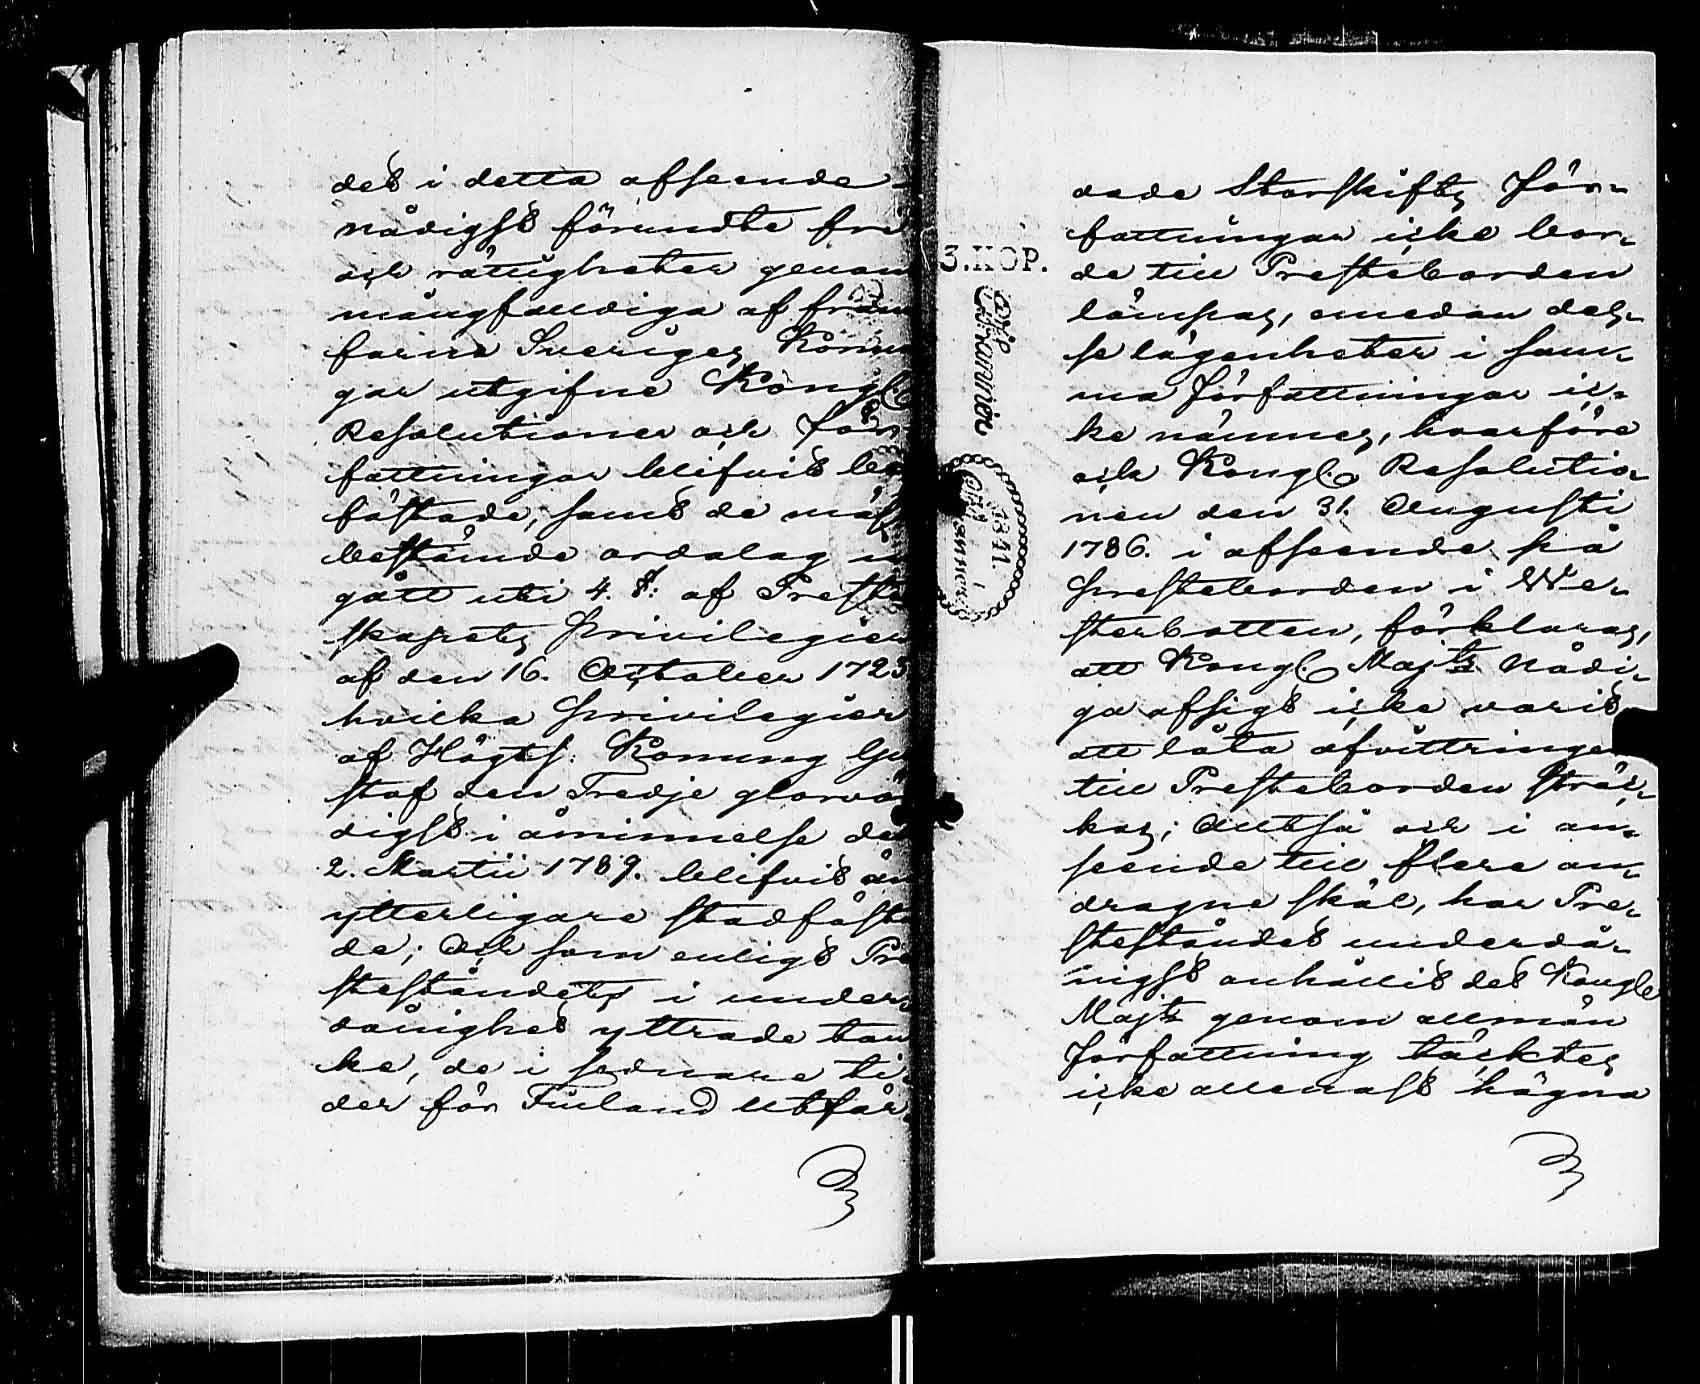 det i detta afseende
nådigst förundte fri
och rättigheter genom
mångfaldiga af fram
farne Sveriges Konun
gar utgifne Kongl.
Resolutioner och För
fattningar blifvit be
fästade, samt de mäst
bestämde ordalag in
gått uti 4. §: af Prest
skapets privilegier
af den 16. October 1723
hvilka privilegier
af Högts: Konung Gu
staf den Tredje glorvör
digst i åminnelse den
2. Martii 1789. blifvit än
ytterligare stadfäst
de; Och som enligt Pre
steståndets i under
dånighet yttrade tan
ke, de i sednare ti
der för Finland utfär
3.KOP.
1841.
dade Storskifts För-
fattningar icke bor-
de till Presteborden
lämpas, emedan des-
se lägenheter i sam-
ma författningar ic-
ke nämnes, hvarföre
ock Kongl. Resolutio-
nen den 31. Augusti
1786. i afseende på
presteborden i We-
sterbotten, förklaras,
att Kongl. Majts Nådi-
ga afsigt icke varit
att låta afvittringen
till Presteborden sträc-
kas; Alltså och i an-
seende till flere an-
dragne skäl, har Pre-
steståndet underdå-
nigst anhållit det Kongle
Majt genom allmän
författning täcktes
icke allenast hägna